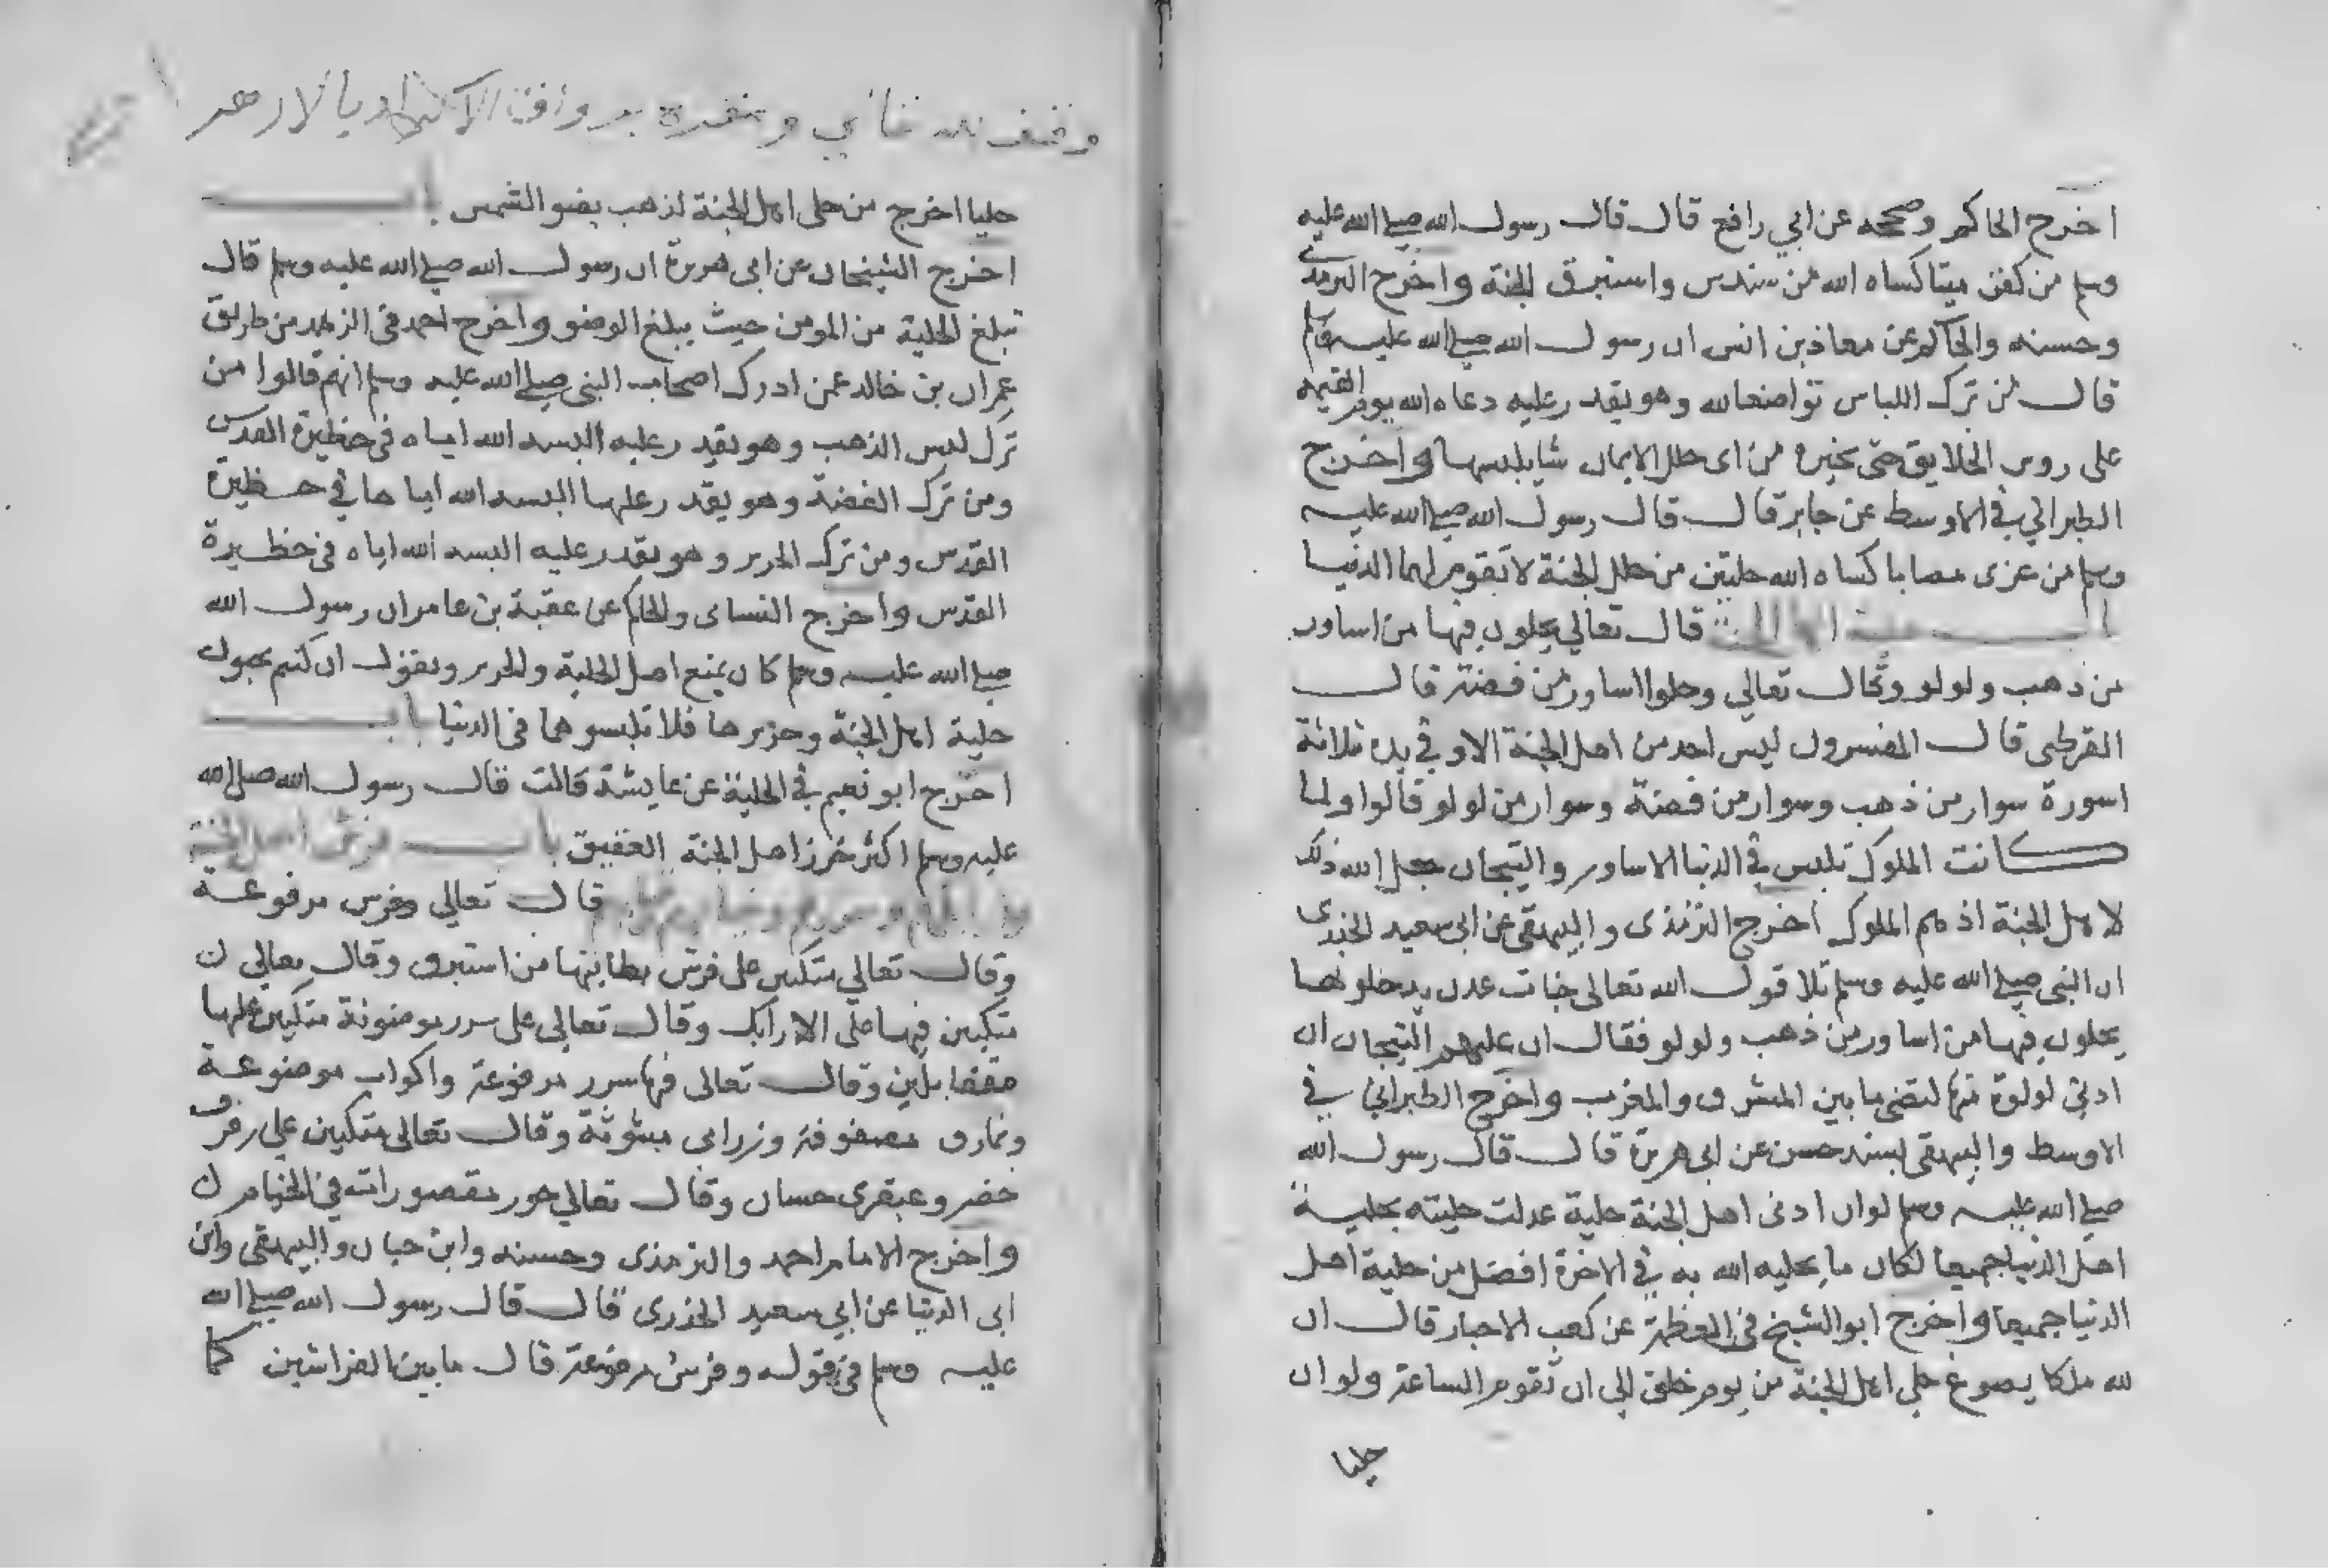 اخرج الحاكم وصححه عن ابي رافع قال قال رسول الله صلى الله عليه
وسلم من كفن ميتا كساه الله من سندس واستبرق الجنة واخرج الترمذي
وحسنه والحاكم عن معاذ بن انس ان رسول الله صلى الله عليه وسلم
قال من ترك اللباس تواضعا لله وهو يقدر عليه دعاه الله يوم القيمه
على روس الخلايق حتى يخيره من اى حلل الايمان شا يلبسها واخرج
الطبراني في الاوسط عن جابر قال قال رسول الله صلى الله عليه
وسلم من عزى مصابا كساه الله حلتين من حلل الجنة لا تقوم لهما الدنيا
قال تعالي يحلون فيها من اساور
من ذهب ولولو وقال تعالي وحلوا اساور من فضة قال
القرطبى قال المفسرون ليس احد من اهل الجنة الا وفي يده ثلاثة
اسورة سوار من ذهب وسوار من فضة وسوار من لولو قالوا ولما
كانت الملوك تلبس في الدنيا الاساور والتيجان جعل الله ذلك
لاهل الجنة اذ هم الملوك اخرج الترمذى والبيهقى عن ابى سعيد الخدرى
ان النبى صلى الله عليه وسلم تلا قول الله تعالى جنات عدن يدخلونها
يحلون فيها من اساور من ذهب ولولو فقال ان عليهم التيجان ان
ادنى لولوة منها لتضى ما بين المشرق والمغرب واخرج الطبراني في
الاوسط والبيهقى بسند حسن عن ابى هريرة قال قال رسول الله
صلى الله عليه وسلم لوان ادنى اهل الجنة حلية عدلت حليته بحلية
اهل الدنيا جميعا لكان ما يحليه الله به في الاخرة افضل من حلية اهل
الدنيا جميعا واخرج ابو الشيخ فى العظمة عن كعب الاحبار قال ان
لله ملكا يصوغ حلى اهل الجنة من يوم خلق الى ان تقوم الساعة ولو ان
حليا
وقف لله تعالي ومقره برواق الاكراد بالازهر
حليا اخرج من حلى اهل الجنة لذهب بضو الشمس باب
اخرج الشيخان عن ابى هريرة ان رسول الله صلى الله عليه وسلم قال
تبلغ الحلية من المومن حيث يبلغ الوضو واخرج احمد فى الزهد من طريق
عمران بن خالد عمن ادرك اصحاب النبى صلى الله عليه وسلم انهم قالوا من
ترك لبس الذهب وهو يقدر عليه البسه الله اياه فى حظيرة القدس
ومن ترك الفضة وهو يقدر عليها البسه الله اياها في حظيرة
القدس ومن ترك الحرير وهو يقدر عليه البسه الله اياه فى حظيرة
القدس واخرج النساى والحاكم عن عقبة بن عامر ان رسول الله
صلى الله عليه وسلم كان يمنع اهل الحلية والحرير ويقول ان كنتم تحبون
حلية اهل الجنة وحريرها فلا تلبسوها فى الدنيا باب
اخرج ابو نعيم في الحلية عن عايشة قالت قال رسول الله صلى الله
عليه وسلم اكثر خرز اهل الجنة العقيق باب فرش اهل الجنة
قال تعالي وفرش مرفوعة
وقال تعالي متكين على فرش بطاينها من استبرق وقال تعالي
متكين فيها على الارايك وقال تعالى على سرر موضونة متكين عليها
متقابلين وقال تعالى فيها سرر مرفوعة واكواب موضوعة
ونمارق مصفوفة وزرابى مبثوثة وقال تعالى متكين على رفرف
خضر وعبقرى حسان وقال تعالي حور مقصورات في الخيام
واخرج الامام احمد والترمذى وحسنه وابن حبان والبيهقى وابن
ابى الدنيا عن ابي سعيد الخدرى قال قال رسول الله صلى الله
عليه وسلم فى قوله وفرش مرفوعة قال ما بين الفراشين كما